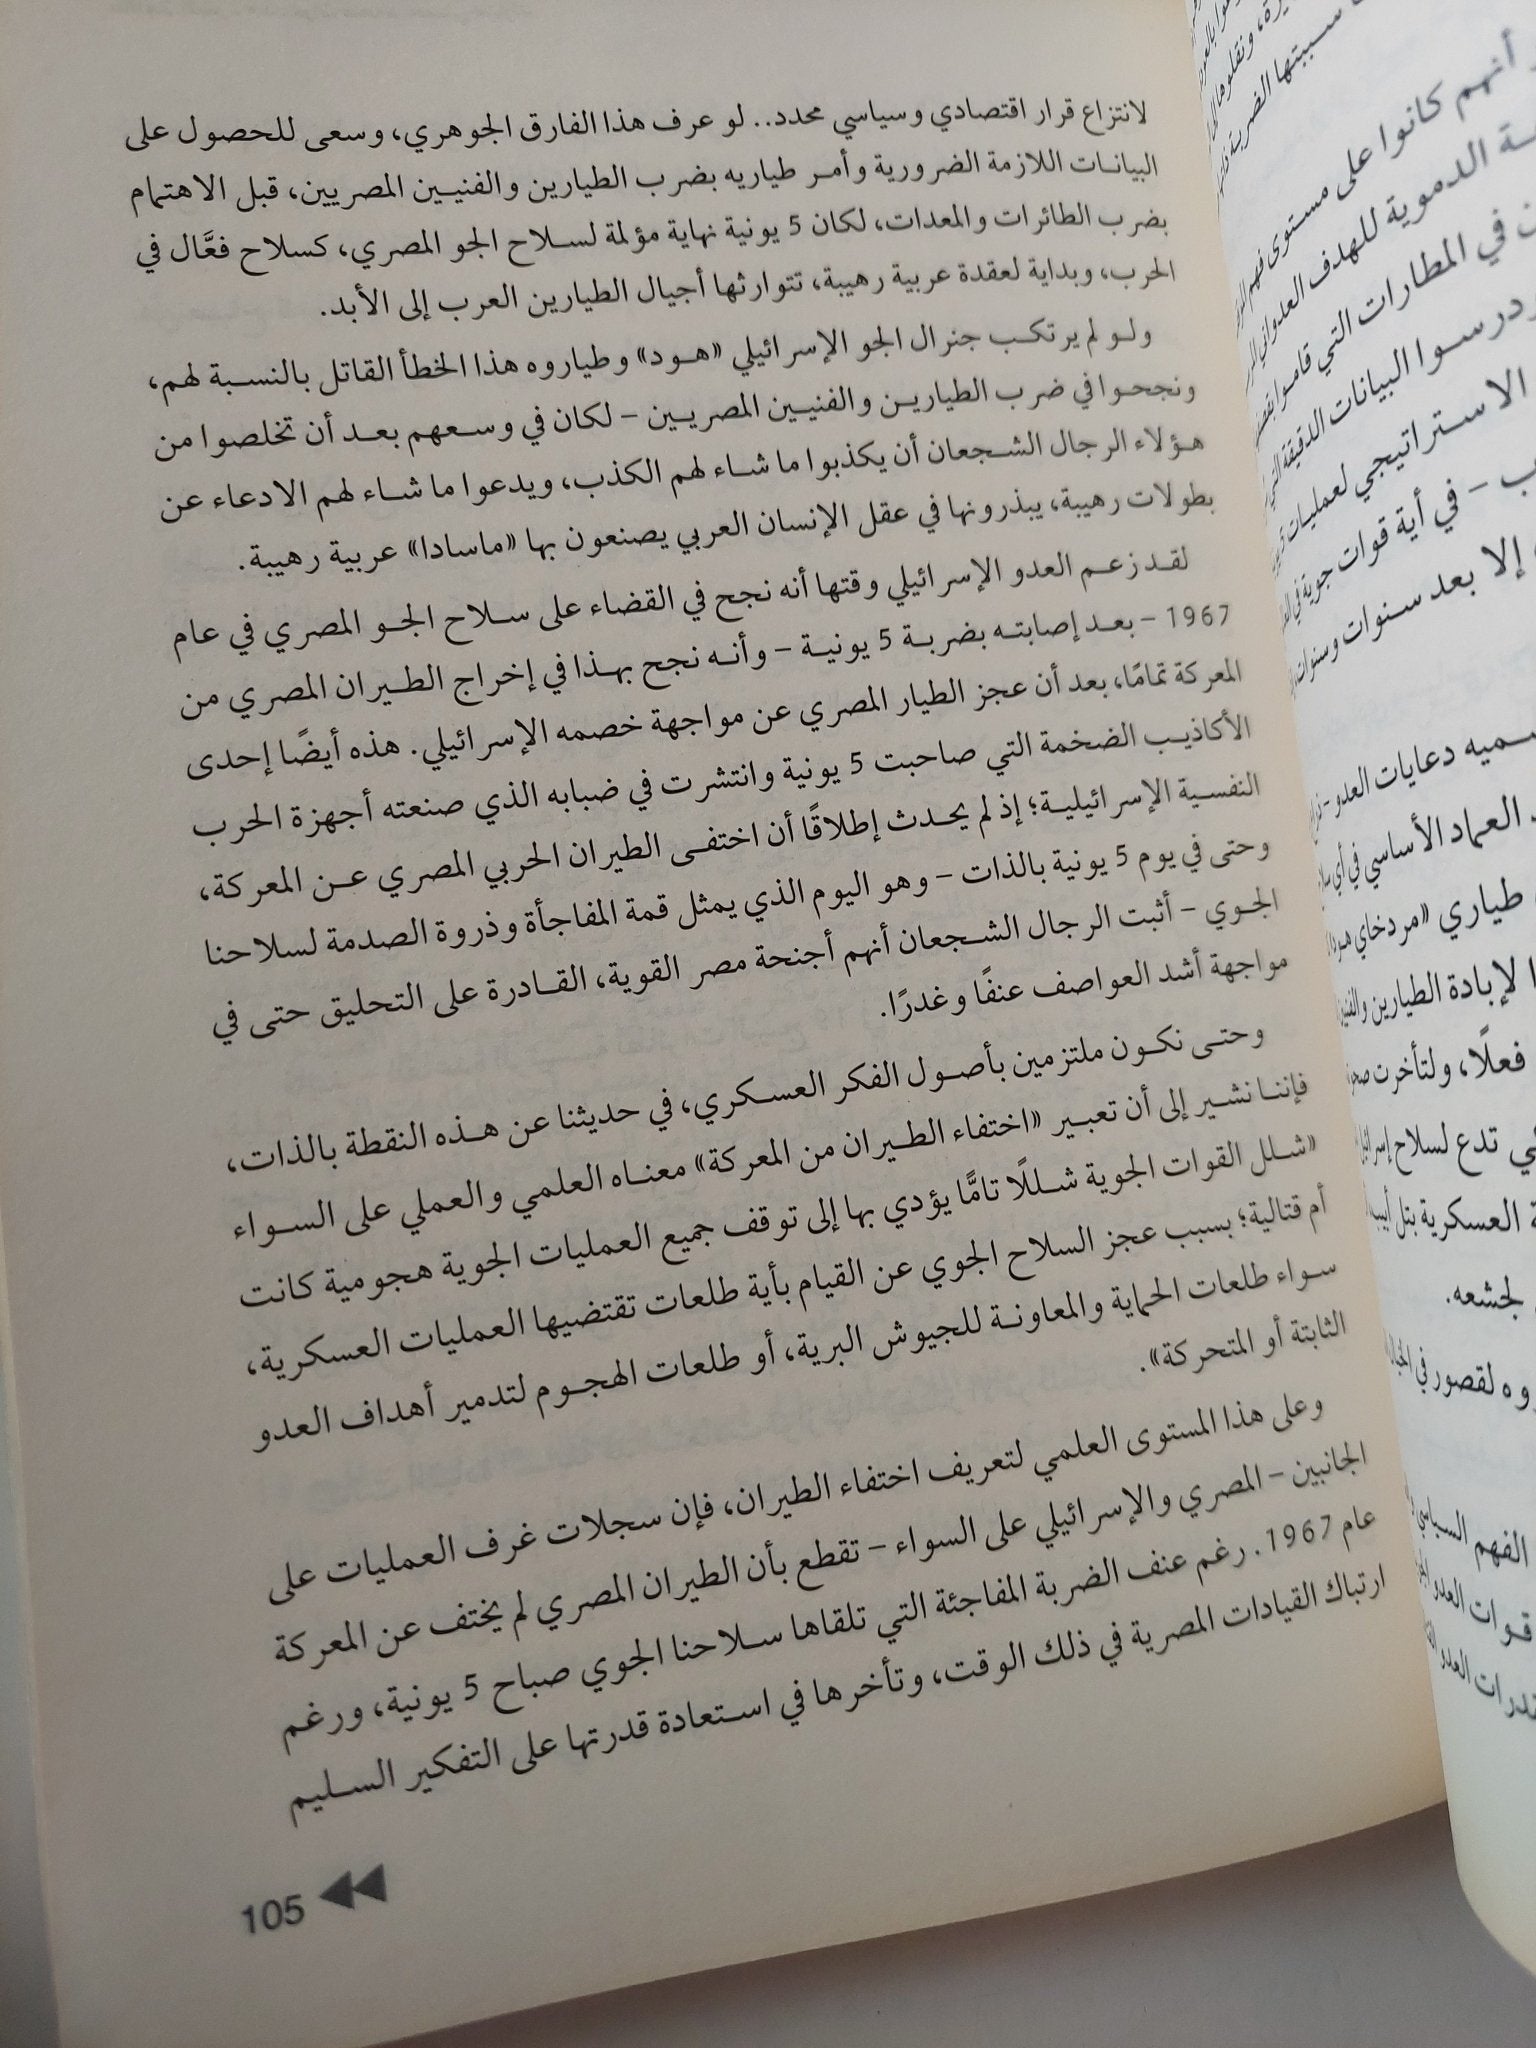 لانتزاع قرار اقتصادي وسياسي محدد.. لو عرف هذا الفارق الجوهري، وسعى للحصول على
البيانات اللازمة الضرورية وأمر طياريه بضرب الطيارين والفنيين المصريين، قبل الاهتمام
بضرب الطائرات والمعدات، لكان 5 يونية نهاية مؤلمة لسلاح الجو المصري، كسلاح فعَّال في
الحرب، وبداية لعقدة عربية رهيبة، تتوارثها أجيال الطيارين العرب إلى الأبد.
ولو لم يرتكب جنرال الجو الإسرائيلي «هود» وطياروه هذا الخطأ القاتل بالنسبة لهم،
ونجحوا في ضرب الطيارين والفنيين المصريين – لكان في وسعهم بعد أن تخلصوا من
هؤلاء الرجال الشجعان أن يكذبوا ما شاء لهم الكذب، ويدعوا ما شاء لهم الادعاء عن
بطولات رهيبة، يبذرونها في عقل الإنسان العربي يصنعون بها «ماسادا» عربية رهيبة.
لقد زعم العدو الإسرائيلي وقتها أنه نجح في القضاء على سلاح الجو المصري في عام
1967 – بعد إصابته بضربة 5 يونية – وأنه نجح بهذا في إخراج الطيران المصري من
المعركة تمامًا، بعد أن عجز الطيار المصري عن مواجهة خصمه الإسرائيلي. هذه أيضًا إحدى
الأكاذيب الضخمة التي صاحبت 5 يونية وانتشرت في ضبابه الذي صنعته أجهزة الحرب
النفسية الإسرائيلية؛ إذ لم يحدث إطلاقًا أن اختفى الطيران الحربي المصري عن المعركة،
وحتى في يوم 5 يونية بالذات – وهو اليوم الذي يمثل قمة المفاجأة وذروة الصدمة لسلاحنا
الجوي – أثبت الرجال الشجعان أنهم أجنحة مصر القوية، القادرة على التحليق حتى في
مواجهة أشد العواصف عنفًا وغدرًا.
وحتى نكون ملتزمين بأصول الفكر العسكري، في حديثنا عن هذه النقطة بالذات،
فإننا نشير إلى أن تعبير «اختفاء الطيران من المعركة» معناه العلمي والعملي على السواء
«شلل القوات الجوية شللًا تامًّا يؤدي بها إلى توقف جميع العمليات الجوية هجومية كانت
أم قتالية؛ بسبب عجز السلاح الجوي عن القيام بأية طلعات تقتضيها العمليات العسكرية،
سواء طلعات الحماية والمعاونة للجيوش البرية، أو طلعات الهجوم لتدمير أهداف العدو
الثابتة أو المتحركة».
وعلى هذا المستوى العلمي لتعريف اختفاء الطيران، فإن سجلات غرف العمليات على
الجانبين – المصري والإسرائيلي على السواء – تقطع بأن الطيران المصري لم يختف عن المعركة
عام 1967. رغم عنف الضربة المفاجئة التي تلقاها سلاحنا الجوي صباح 5 يونية، ورغم
ارتباك القيادات المصرية في ذلك الوقت، وتأخرها في استعادة قدرتها على التفكير السليم
105
سببتها الضربة
أنهم كانوا على مستوى فهم
الدموية للهدف العدواني
في المطارات التي قاموا
درسوا البيانات الدقيقة التي
الاستراتيجي لعمليات
– في أية قوات جوية في
إلا بعد سنوات وسنوات
دعايات العدو –
العماد الأساسي في أي
طياري «مردخاي
لإبادة الطيارين
فعلًا، ولتأخرت
تدع لسلاح
العسكرية بتل
لجشعه.
لقصور في
الفهم السياسي
قوات العدو
العدو